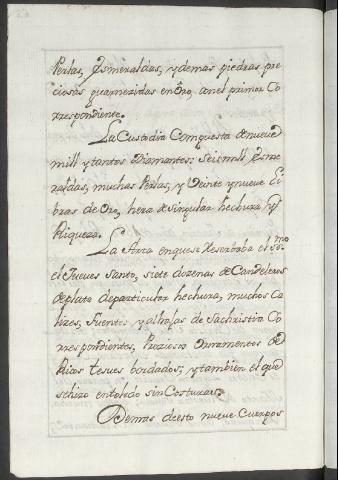 Perlas, Esmeraldas, y demas piedras pre
ciosas guarnezidas en Oro, con el primor Co
rrespondiente.
La Custodia Compuesta de nueve
mill y tantos Diamantes: Seis mill Esme
raldas, muchas Perlas, y Veinte y nueve Li
bras de Oro, hera de singular hechura y
Riqueza.
La Arca en que se Reserbaba el SSmo
el Jueves Santo, siete dozenas de Candeleros
de plata de particular hechura, muchos Ca
lizes, Fuentes y alhajas de Sachristia Co
rrespondientes, Preziosos Ornamentos de
Ricos tesues bordados, y tambien el que
se hizo en toledo sin Costuras.
Demas de esto nueve Cuerpos